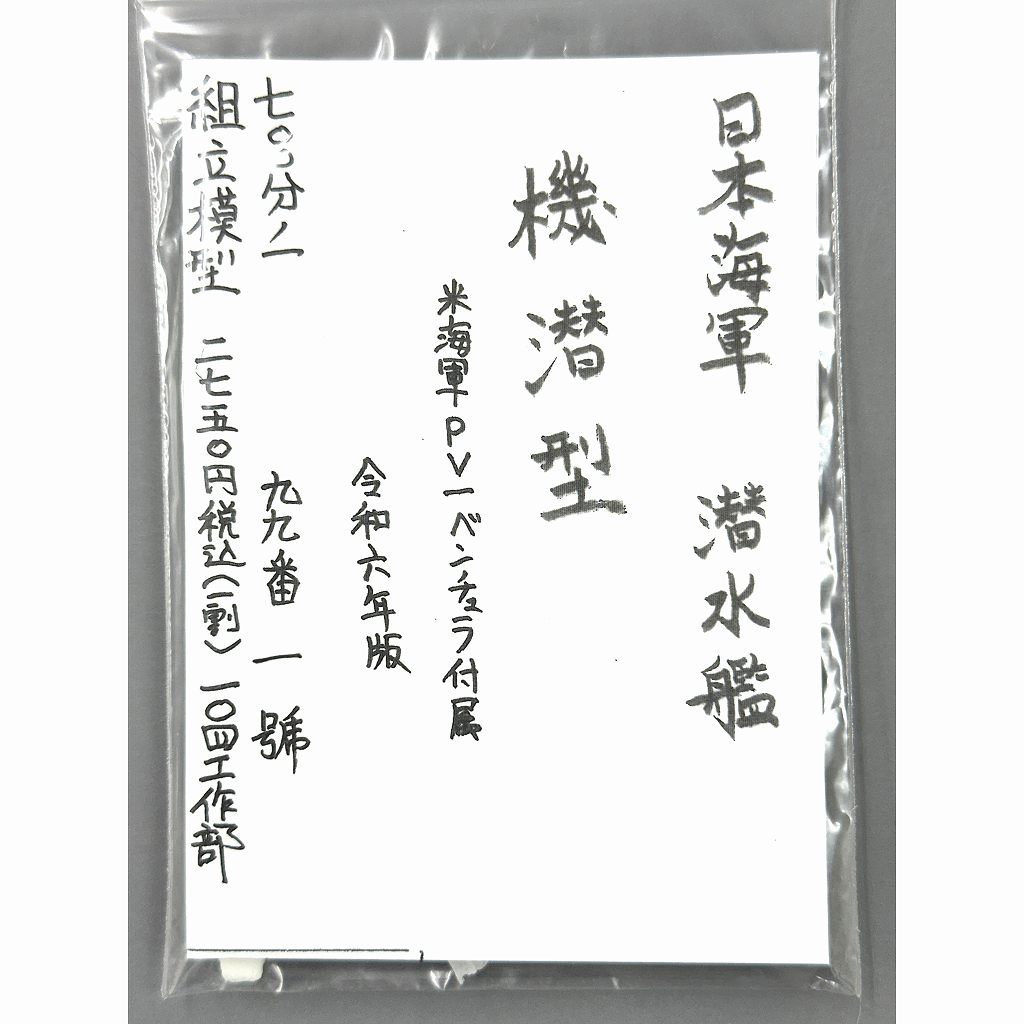 日本海軍 潜水艦
機潜型
米海軍PV一ベンチュラ付属
令和六年版
七〇〇分ノ一 九九番 一號
組立模型 二七五〇円税込(一割) 一〇四工作部